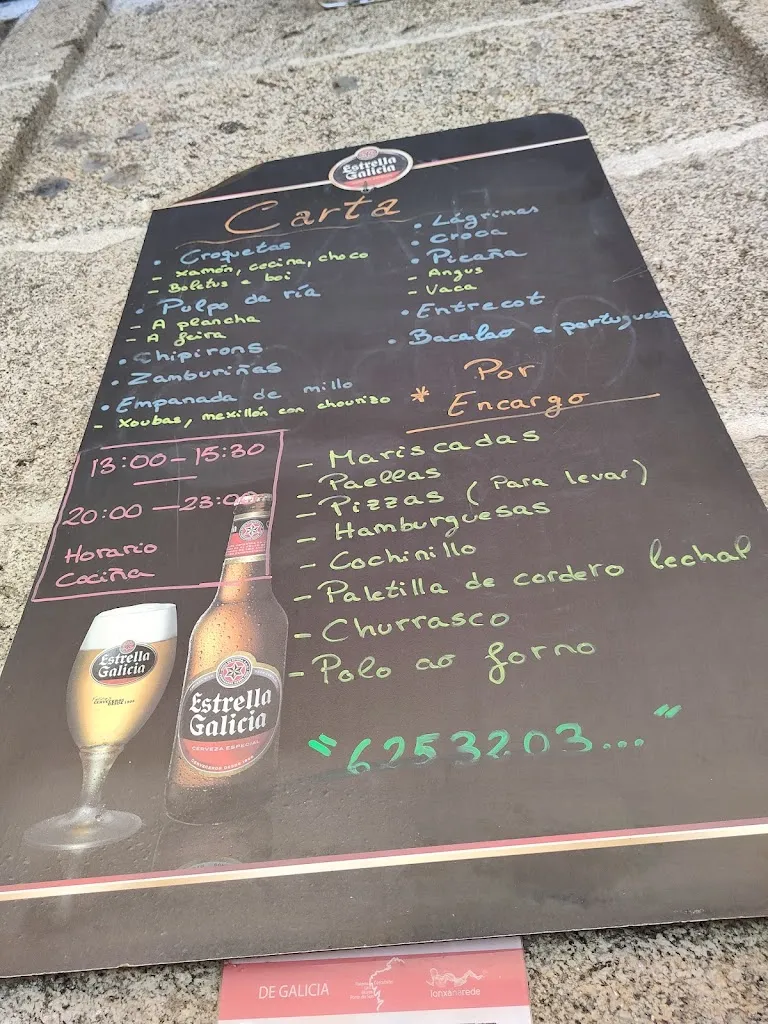 Estrella
Galicia
Carta
• Croquetas
- Xamón, cecina, choco
- Boletus e boi
• Pulpo da ría
- A plancha
- A feira
• Chipirons
• Zamburiñas
• Empanada de millo
- Xoubas, mexillón con chourizo
• Lágrimas
• Croca
• Picaña
- Angus
- Vaca
• Entrecot
• Bacalao a portuguesa
13:00 - 15:30
20:00 - 23:00
Horario
Cociña
Por
* Encargo
- Mariscadas
- Paellas
- Pizzas (Para levar)
- Hamburguesas
- Cochinillo
- Paletilla de cordero lechal
- Churrasco
- Polo ao forno
"6253203..."
Estrella
Galicia
Estrella
Galicia
CERVEZA ESPECIAL
DE GALICIA
lonxanarede